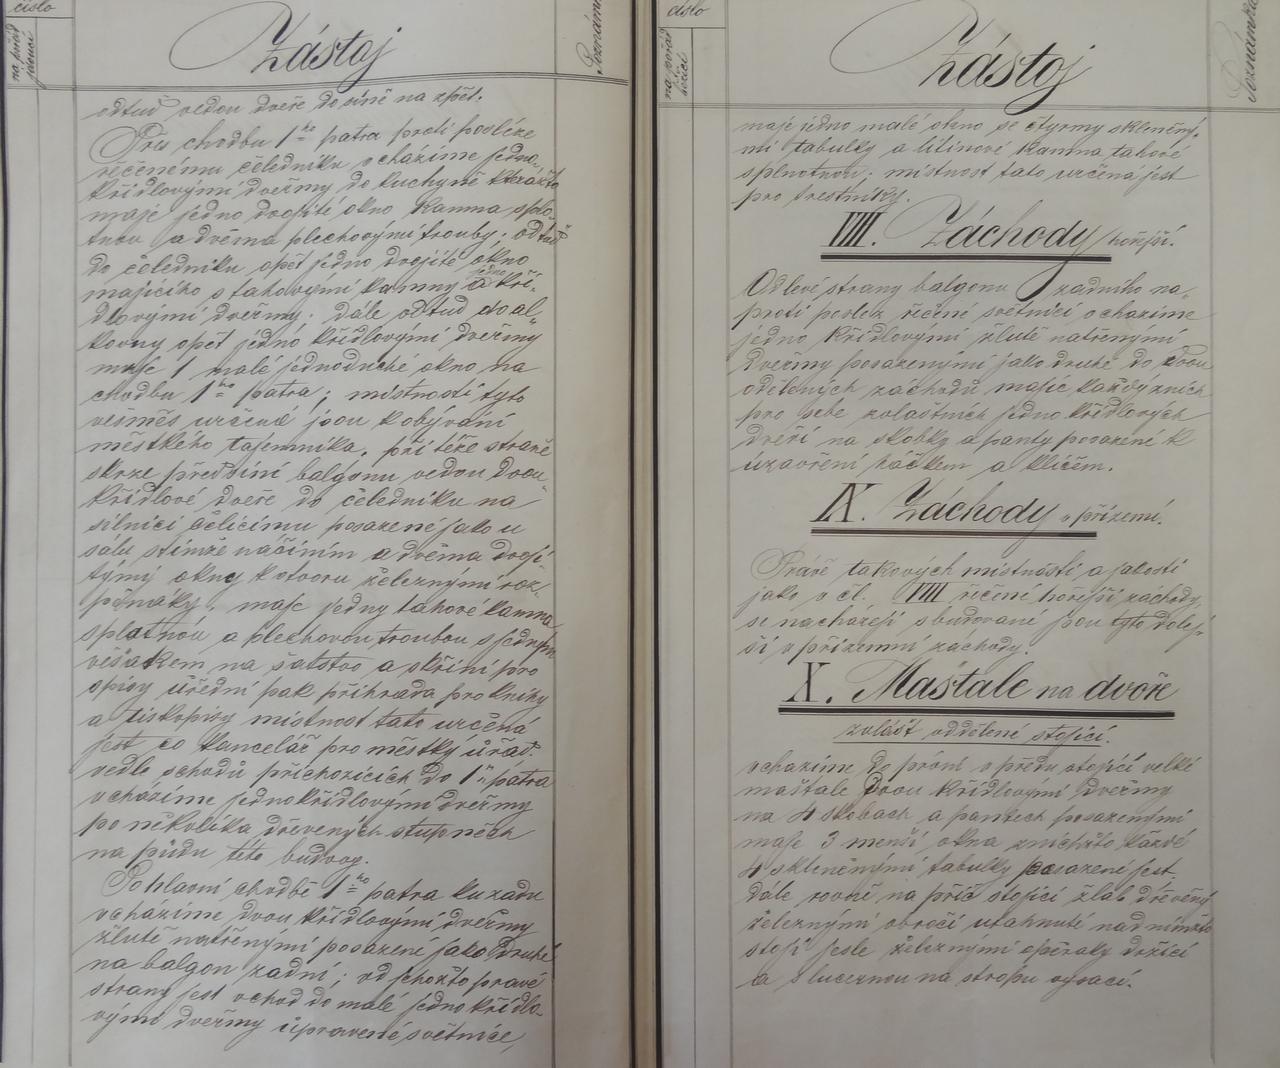 číslo
na pořad
jdoucí
Zástoj
Poznámka
odtud vedou dveře do síně na zpět.
Přes chodbu 1ho patra proti posléze
řečenému čeledníku vcházíme jedno-
křídlovými dveřmy do kuchyně kterážto
maje jedno dvojité okno kamna s plot-
nou a dvěma plechovými trouby. odtud
do čeledníku opět jedno dvojité okno
majícího s tahovými kamny a jedno kří-
dlovými dveřmy. dále odtud do al-
kovny opět jedno křídlovými dveřmy
maje 1 malé jednoduché okno na
chodbu 1ho patra; místnosti tyto
vesměs určené jsou k obývaní
městkého tajemníka. při téže straně
skrze předsíní balgonu vedou dvou
křídlové dveře do čeledníku na
silnici čelícímu posazené jako u
sálu stímže náčiním a dvěma dvoji
týmy okny k otvoru železnými roz-
pěrnáky. maje jedny tahové kamna
s platnou a plechovou troubou s jedním
věšakem na šatstvo a skříní pro
spisy úřední pak přihrada pro knihy
a tiskopisy místnost tato určená
jest co kancelář pro městký úřad.
vedle schodů příchozících do 1ho patra
vcházíme jednokřídlovými dveřmy
po několika dřevených stupněch
na půdu této budovy.
Po hlavní chodbě 1ho patra ku zadu
vcházíme dvou křídlovými dveřmy
žlutě natřenými posazené jako druhé
na balgon zadní; od jehožto pravé
strany jest vchod do malé jedno křídlo-
výmy dveřmy upravené světnice,
číslo
na pořad
Zástoj
Poznámka
maje jedno malé okno se čtyrmy skleněný-
mi tabulky a litinové kamna tahové
s plotnou; místnost tato určena jest
pro trestníky.
VIII. Záchody hořejší.
Od levé strany balgonu zadního na-
proti posléz řečené světnici vcházíme
jedno křídlovými žlutě natřenými
dveřmy posazenými jako druhé do dvou
oddělených záchodů maje každý z nich
pro sebe zvlastních jedno křídlových
dveří na skobky a panty posazené k
uzavření háčkem a klíčem.
IX. Záchody v přízemí.
Právě takových místností a jakosti
jako v čl. VIII řečení hořejší záchody,
se nacházejí s budované jsou tyto dolej-
ší v přízemní záchody.
X. Maštale na dvoře
zvlášť oddělené stojící.
vchazíme do první v předu stojící velké
maštale dvou křídlovými dveřmy
na 4 skobach a pantech posazenými
maje 3 menší okna z nichžto každé
4 skleněnými tabulky posazené jest
dále rovně na příč stojící žlab dřevěný
železnými obročí utahnutí nad nímžto
stojí jesle železnými opěraky držící
a s lucernou na stropu vysací.